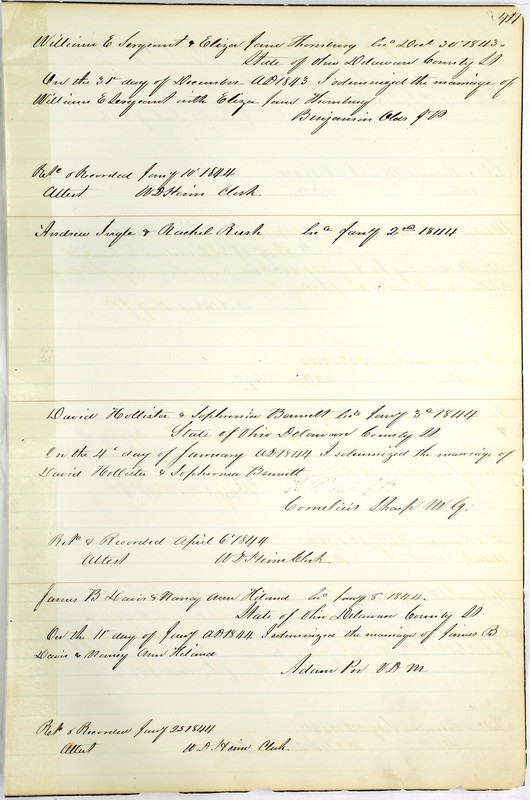 William E Sergeant & Eliza Jane Thornburg Lic Dect 30th 1843.
State of Ohio Delaware County SS
On the 31st day of December AD 1843 I solemnized the marriage of
William E Sergeant with Eliza Jane Thornburg
Benjamin Olds J P
Retd & Recorded Jany 10th 1844
Attest W D Heim Clerk
Andrew Ingle & Rachel Rush Lic Jany 2nd 1844
David Hollister & Sophronia Bennett Lic Jany 3d 1844
State of Ohio Delaware County SS
On the 4th day of January AD 1844 I solemnized the marriage of
David Hollister & Sophronia Bennett
Cornelius Sharp M G.
Retd & Recorded April 6th 1844
Attest W D Heim Clerk
James B Davis & Nancy Ann Hiland Lic Jany 8 1844.
State of Ohio Delaware County SS
On the 11th day of Jany AD 1844 I solemnized the marriage of James B
Davis & Nancy Ann Hiland
Adam Poe V. D. M
Retd & Recorded Jany 25 1844
Attest W D Heim Clerk.